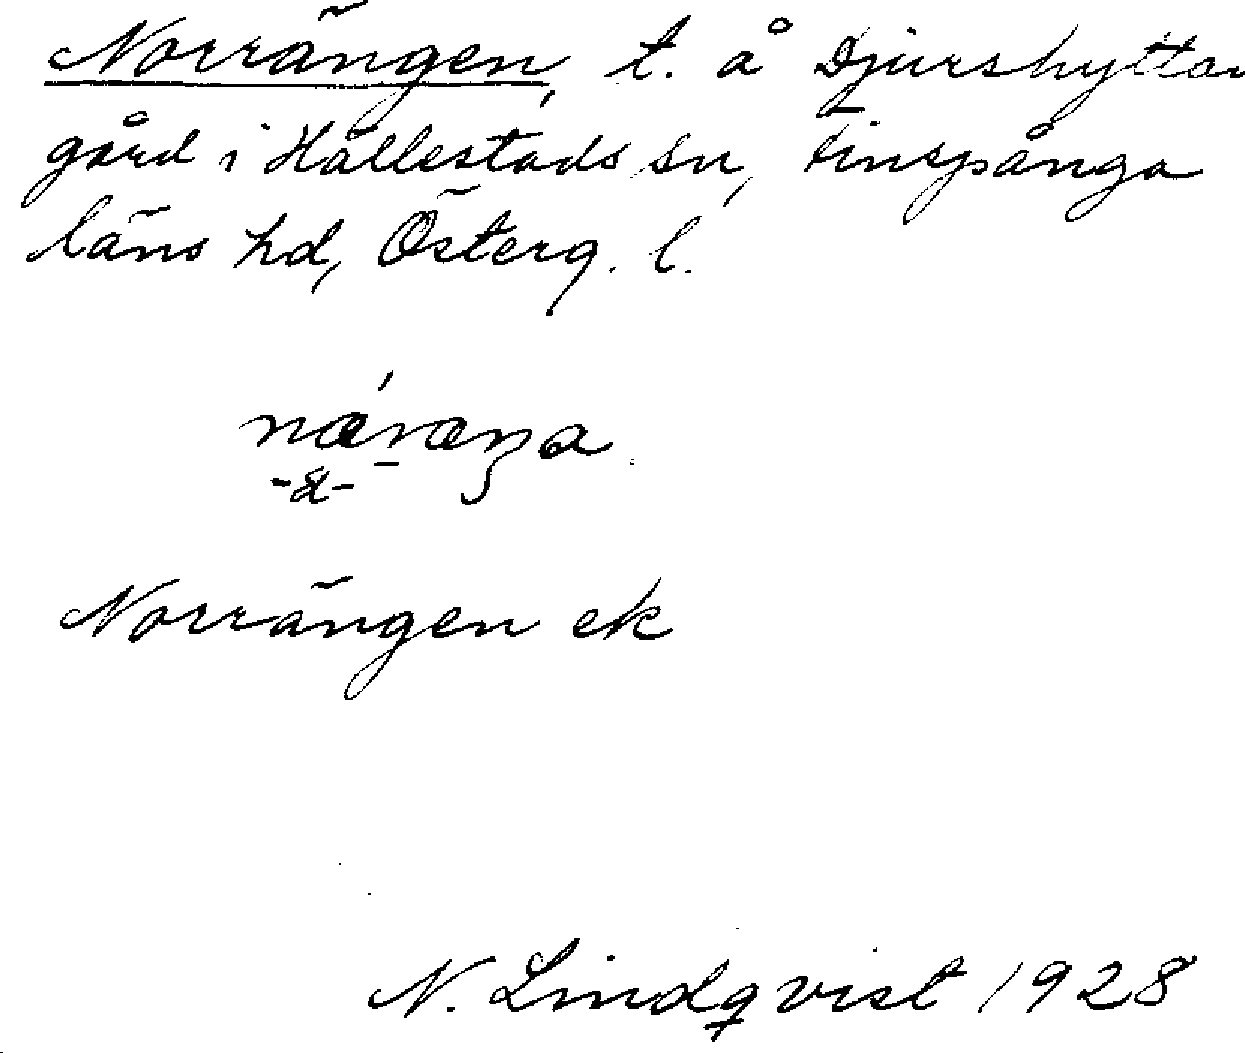 Norrängen, t. å Djurshyttan
gård i Hällestads sn, Finspånga
läns hd, Österg. l.
Norrängen ek
N. Lindqvist 1928